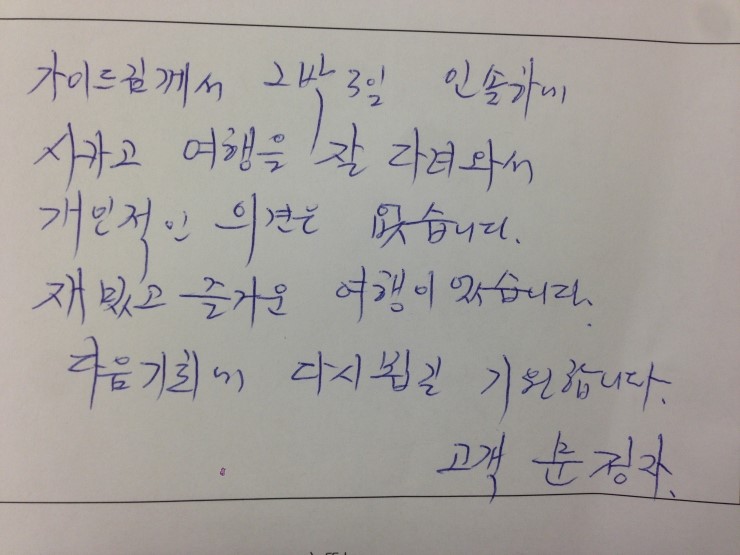 가이드님께서 2박 3일 인솔하에
사카고 여행을 잘 다려와서
개인적인 의견은 없습니다.
재밌고 즐거운 여행이었습니다.
다음기회에 다시 뵙길 기원합니다.
고객 문정자.